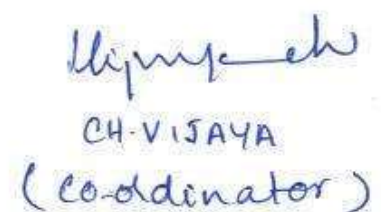 CH. VIJAYA
(co-oddinator)